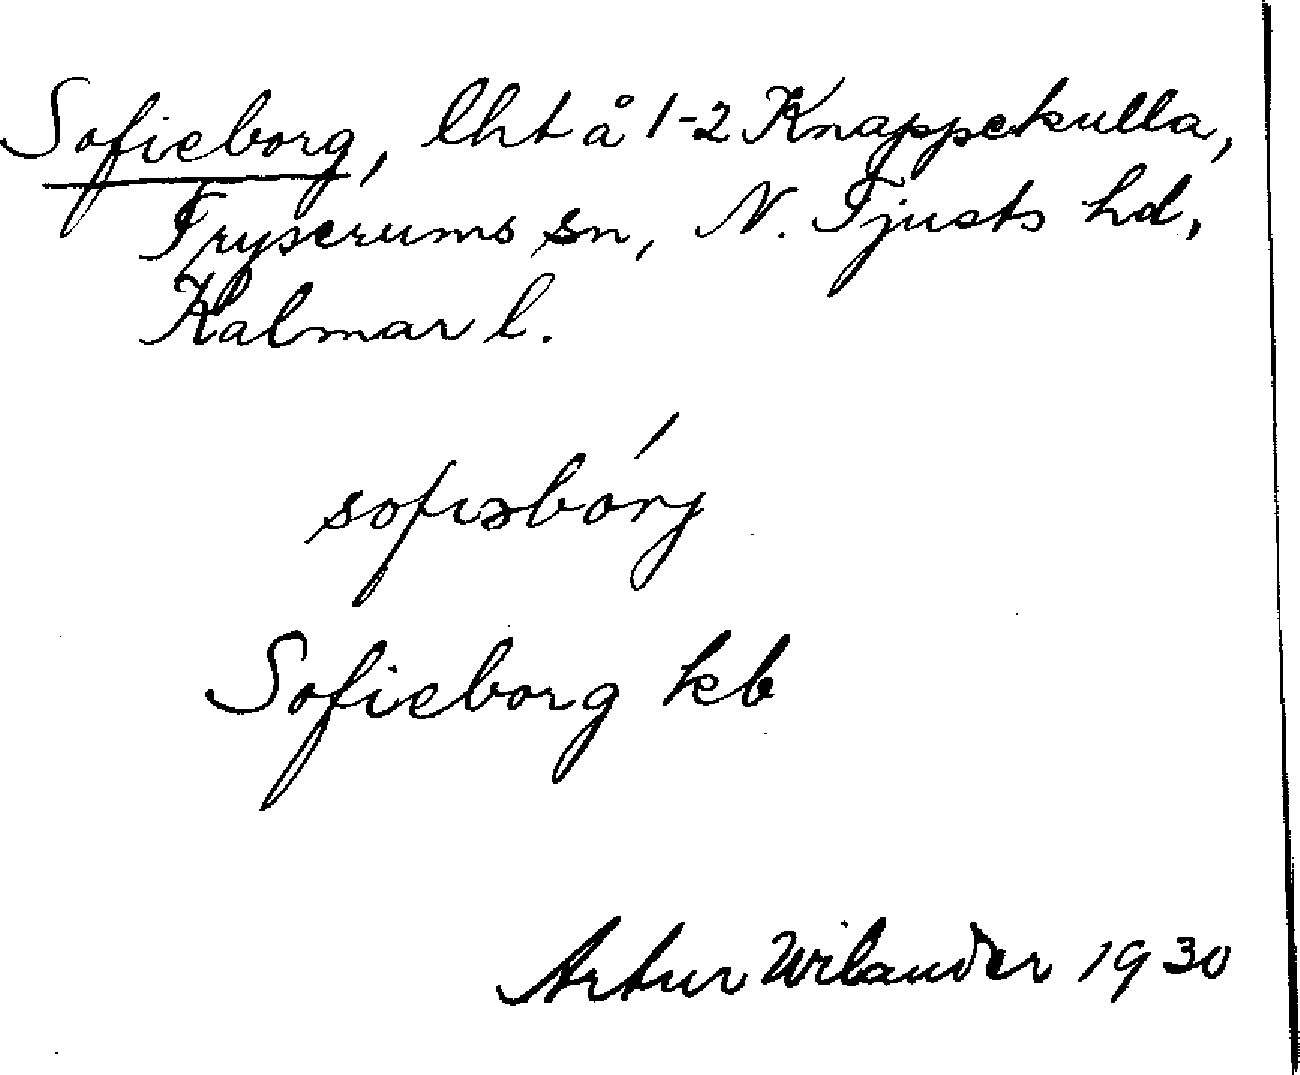 Sofieborg, lht å 1-2 Knappekulla,
Fryserums sn, N. Tjusts hd,
Kalmar l.
sofiəbórj
Sofieborg kb
Artur Wilander 1930